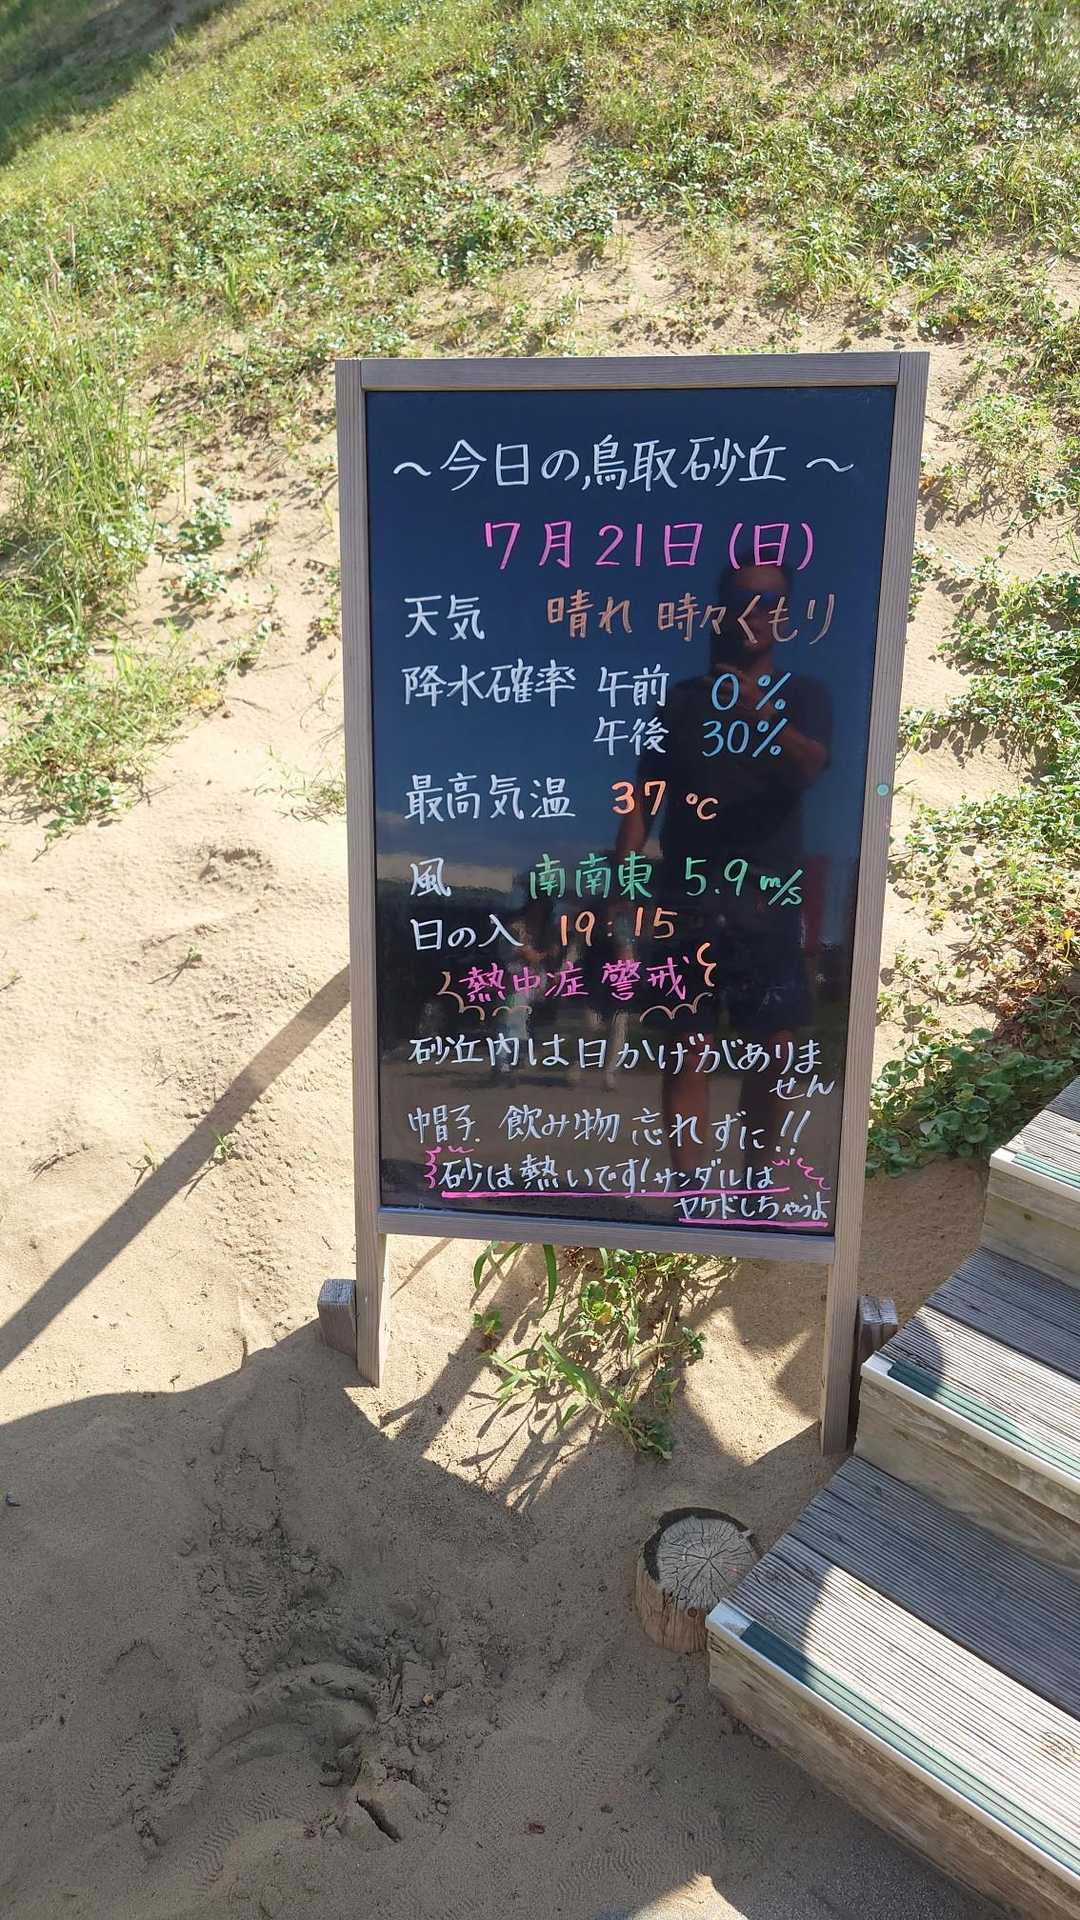 ～今日の鳥取砂丘～
7月21日(日)
天気 晴れ 時々くもり
降水確率 午前 0%
午後 30%
最高気温 37℃
風 南南東 5.9m/s
日の入 19:15
熱中症警戒
砂丘内は日かげがありま
せん
帽子 飲み物 忘れずに!!
砂は熱いです!サンダルは
ヤケドしちゃうよ